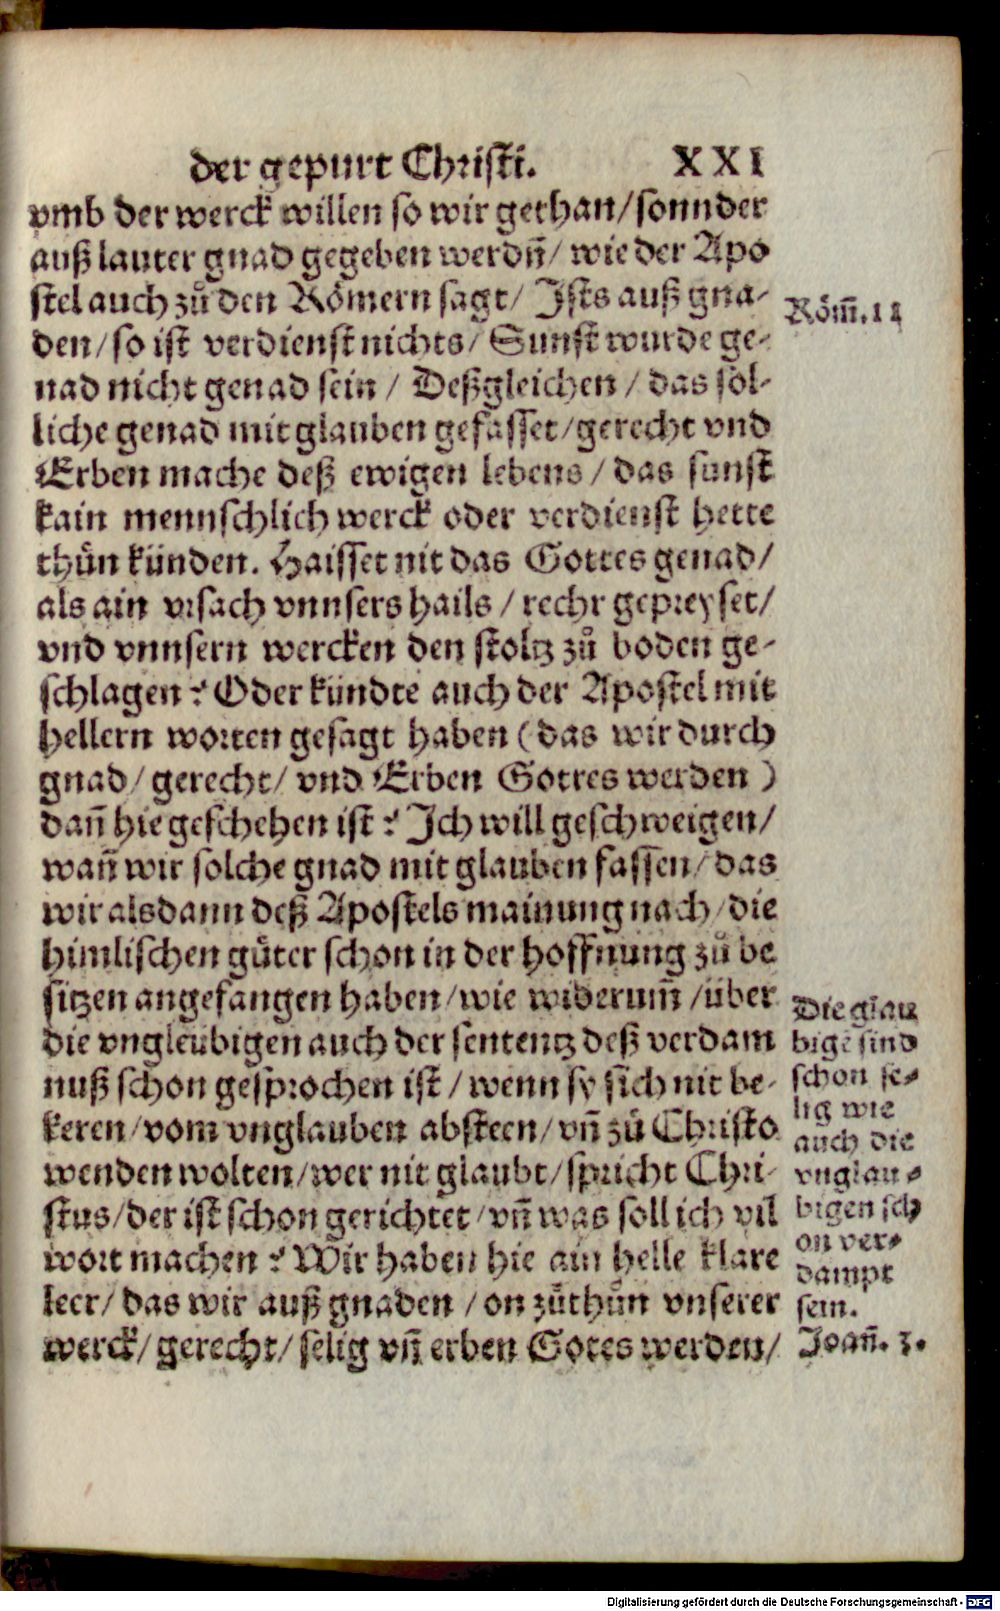 der gepurt Christi. XXI
vmb der werck willen so wir gethan/sonnder
auß lauter gnad gegeben werdñ/ wie der Apo
stel auch zů den Römern sagt/ Ists auß gna-
den/so ist verdienst nichts/ Sunst wurde ge-
nad nicht genad sein / Deßgleichen / das sol-
liche genad mit glauben gefasset/gerecht vnd
Erben mache deß ewigen lebens / das sunst
kain mennschlich werck oder verdienst hette
thůn künden. Haisset nit das Gottes genad/
als ain vrsach vnnsers hails / recht gepreyset/
vnd vnnsern wercken den stoltz zů boden ge-
schlagen? Oder kündte auch der Apostel mit
hellern worten gesagt haben (das wir durch
gnad/ gerecht/ vnd Erben Gottes werden)
dañ hie geschehen ist? Ich will geschweigen/
wañ wir solche gnad mit glauben fassen/ das
wir alsdann deß Apostels mainung nach/die
himlischen gůter schon in der hoffnung zů be
sitzen angefangen haben/wie widerum̃ /über
die vngleubigen auch der sententz deß verdam
nuß schon gesprochen ist / wenn sy sich nit be-
keren/vom vnglauben absteen/vñ zů Christo
wenden wolten/wer nit glaubt/spricht Chri-
stus/der ist schon gerichtet/vñ was soll ich vil
wort machen? Wir haben hie ain helle klare
leer/ das wir auß gnaden / on zůthůn vnserer
werck/ gerecht/ selig vñ erben Gotes werden/
Röm̃.11
Die glau
bigē sind
schon se-
lig wie
auch die
vnglau-
bigen sch
on ver-
dampt
sein.
Joañ. 3.
Digitalisierung gefördert durch die Deutsche Forschungsgemeinschaft - DFG